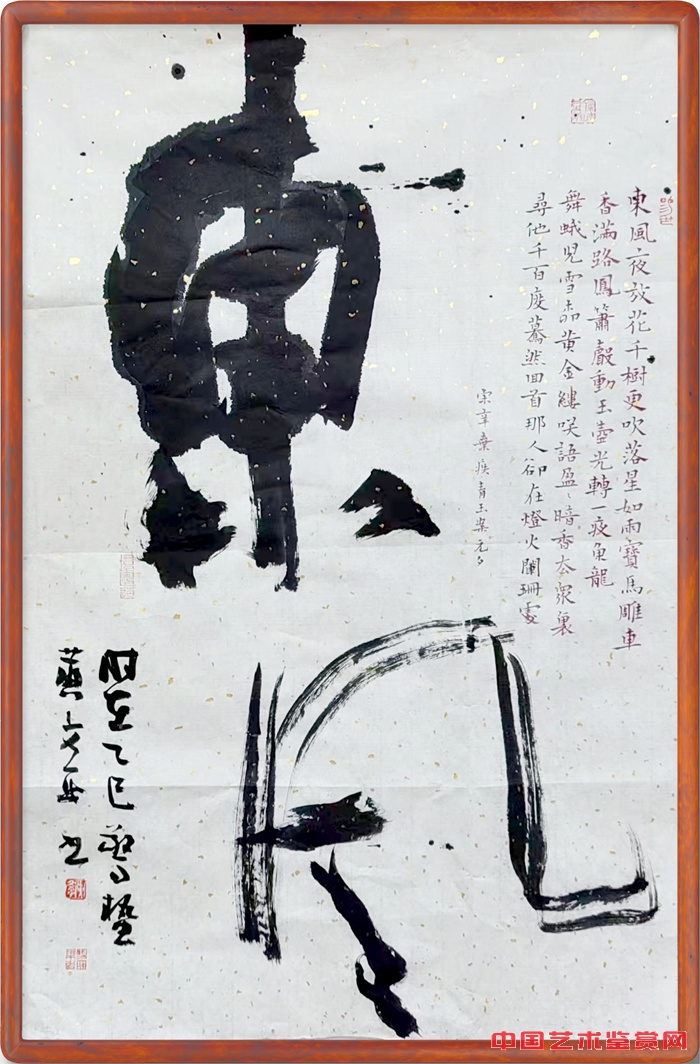 東風
東風夜放花千樹更吹落星如雨寶馬雕車
香滿路鳳簫聲動玉壺光轉一夜魚龍
舞蛾兒雪柳黃金縷笑語盈〻暗香去眾裏
尋他千百度驀然回首那人卻在燈火闌珊處
宋辛棄疾青玉案元夕
時在乙巳驚蟄
中国艺术鉴赏网